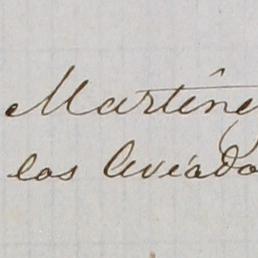 Martíne
los Aviádo